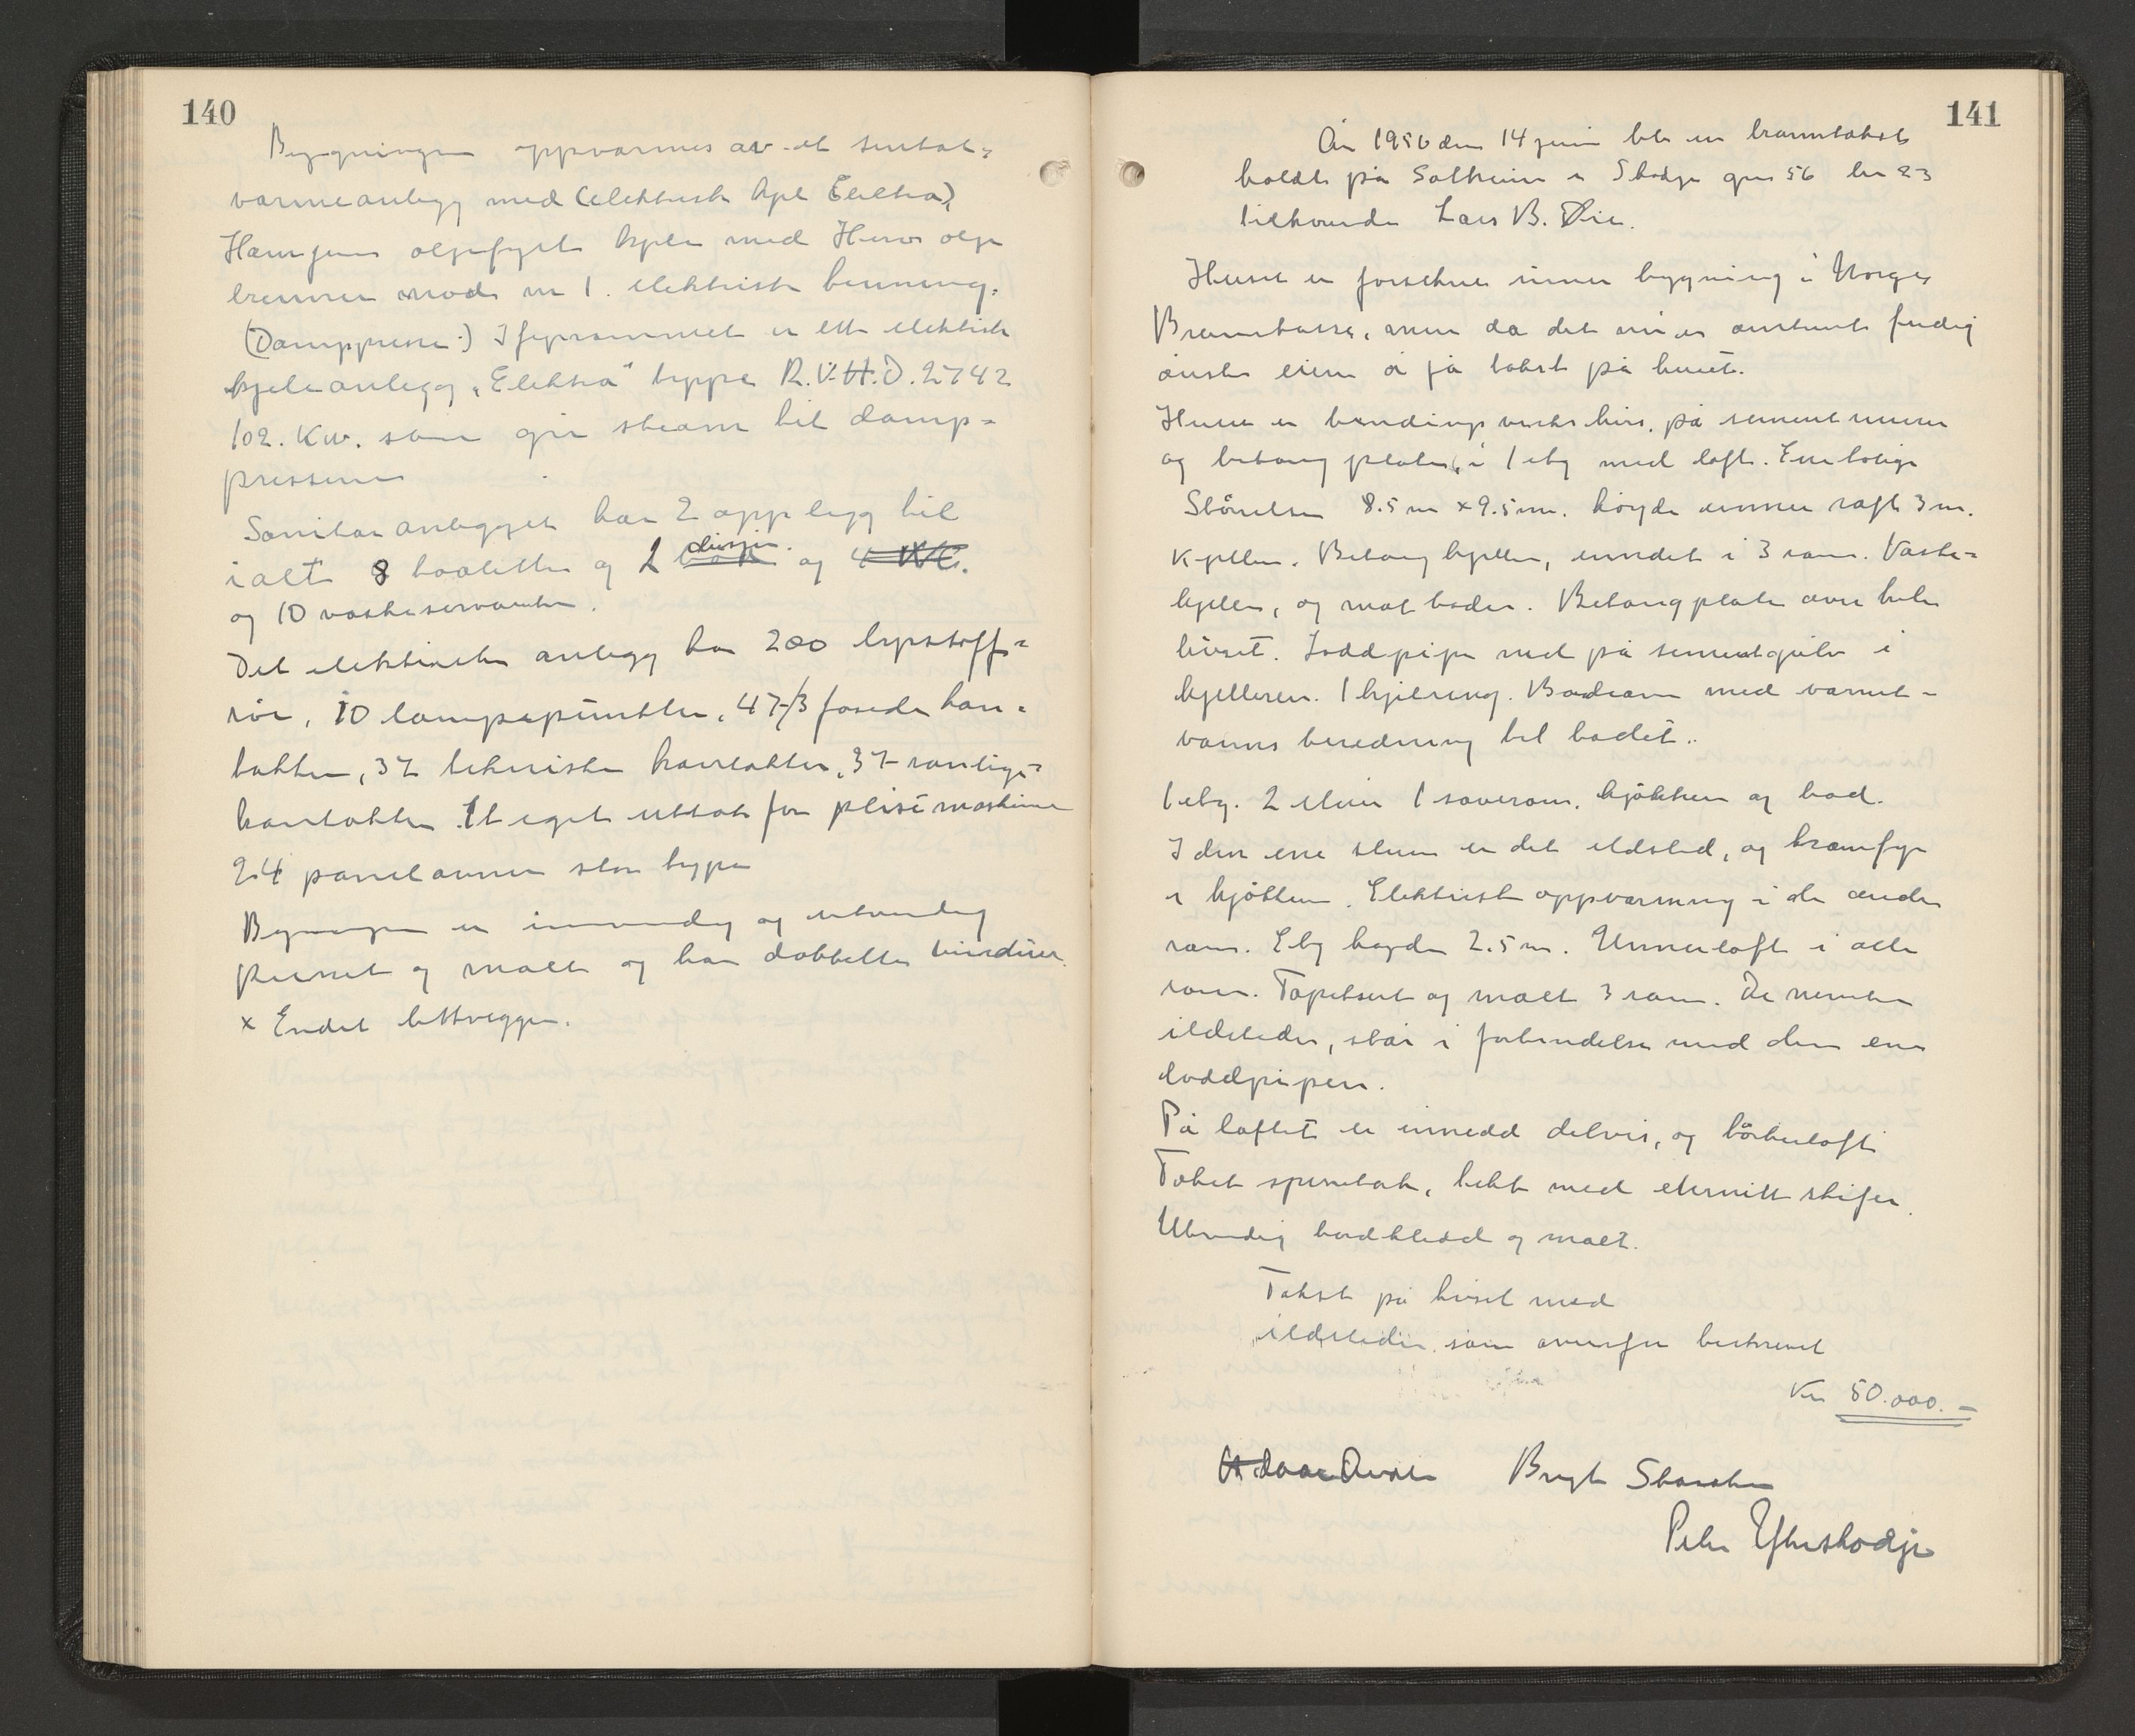 140
Bygningen oppvarmes av et sentral-
varmeanlegg med (elektrisk kjel Elektra),
oljefyrt kjele med olje
brenner 1. elektrisk
(Damppresse) I fyrrommet er ett elektrisk
kjeleanlegg "Elektra" type R.V.H.D. 2742
102. Kw. som gir steam til damp-
pressene
Sanitær anlegget har 2 opplegg til
ialt 8 toaletter og 2 dusjer og
og 10 vaskeservanter.
Det elektriske anlegg har 200 lysstoff-
rør, 10 lampepunkter, 47-/3 faseda kon-
takter, 37 tekniske kontakter, 37 vanlige-
kontakter. 1t eget uttak for plisemaskine
24 panelovner stor type
Bygningen er innvendig og utvendig
pusset og malt og har dobbelte vinduer.
x Endel lettvegger.
141
År 1956 den 14 juni ble en branntakst
holdt på Solheim i Skodje gnr 56 bnr 23
tilhørende Lars B. Øie.
Huset er forsikret under bygning i Norges
Brannkasse, men da det nå er omtrent ferdig
ønsker eieren å få takst på huset.
Huset er bindingsverks hus, på sement murer
og betong plater, i 1 etg med loft. Enebolig
Størrelsen 8.5 m x 9.5 m. høyde under raft 3 m.
Kjeller. Betong kjeller, inndelt i 3 rom. Vaske-
kjeller, og mat boder. Betongplate over hele
huset. Loddpipe ned på sementgulv i
kjelleren. 1 kjelering. Badrom med varmt-
vanns beredning til badet.
1 etg. 2 stuer 1 soverom, kjøkken og bad.
I den ene stuen er det ildsted, og kramfyr
i kjøkken. Elektrisk oppvarming i de andre
rom. Etg høyde 2.5 m. Unnerloft i alle
rom. Tapetsert og malt 3 rom. De nevnte
ildsteder, står i forbindelse med den ene
loddpipen.
På loftet er innredd delvis, og tørkeloft
Taket sperretak, tekt med eternitt skifer.
Utvendig bordkledd og malt.
Takst på huset med
ildsteder som ovenfor beskrevet
Kr 50.000.-
Bryt
Peter Ytterskodje